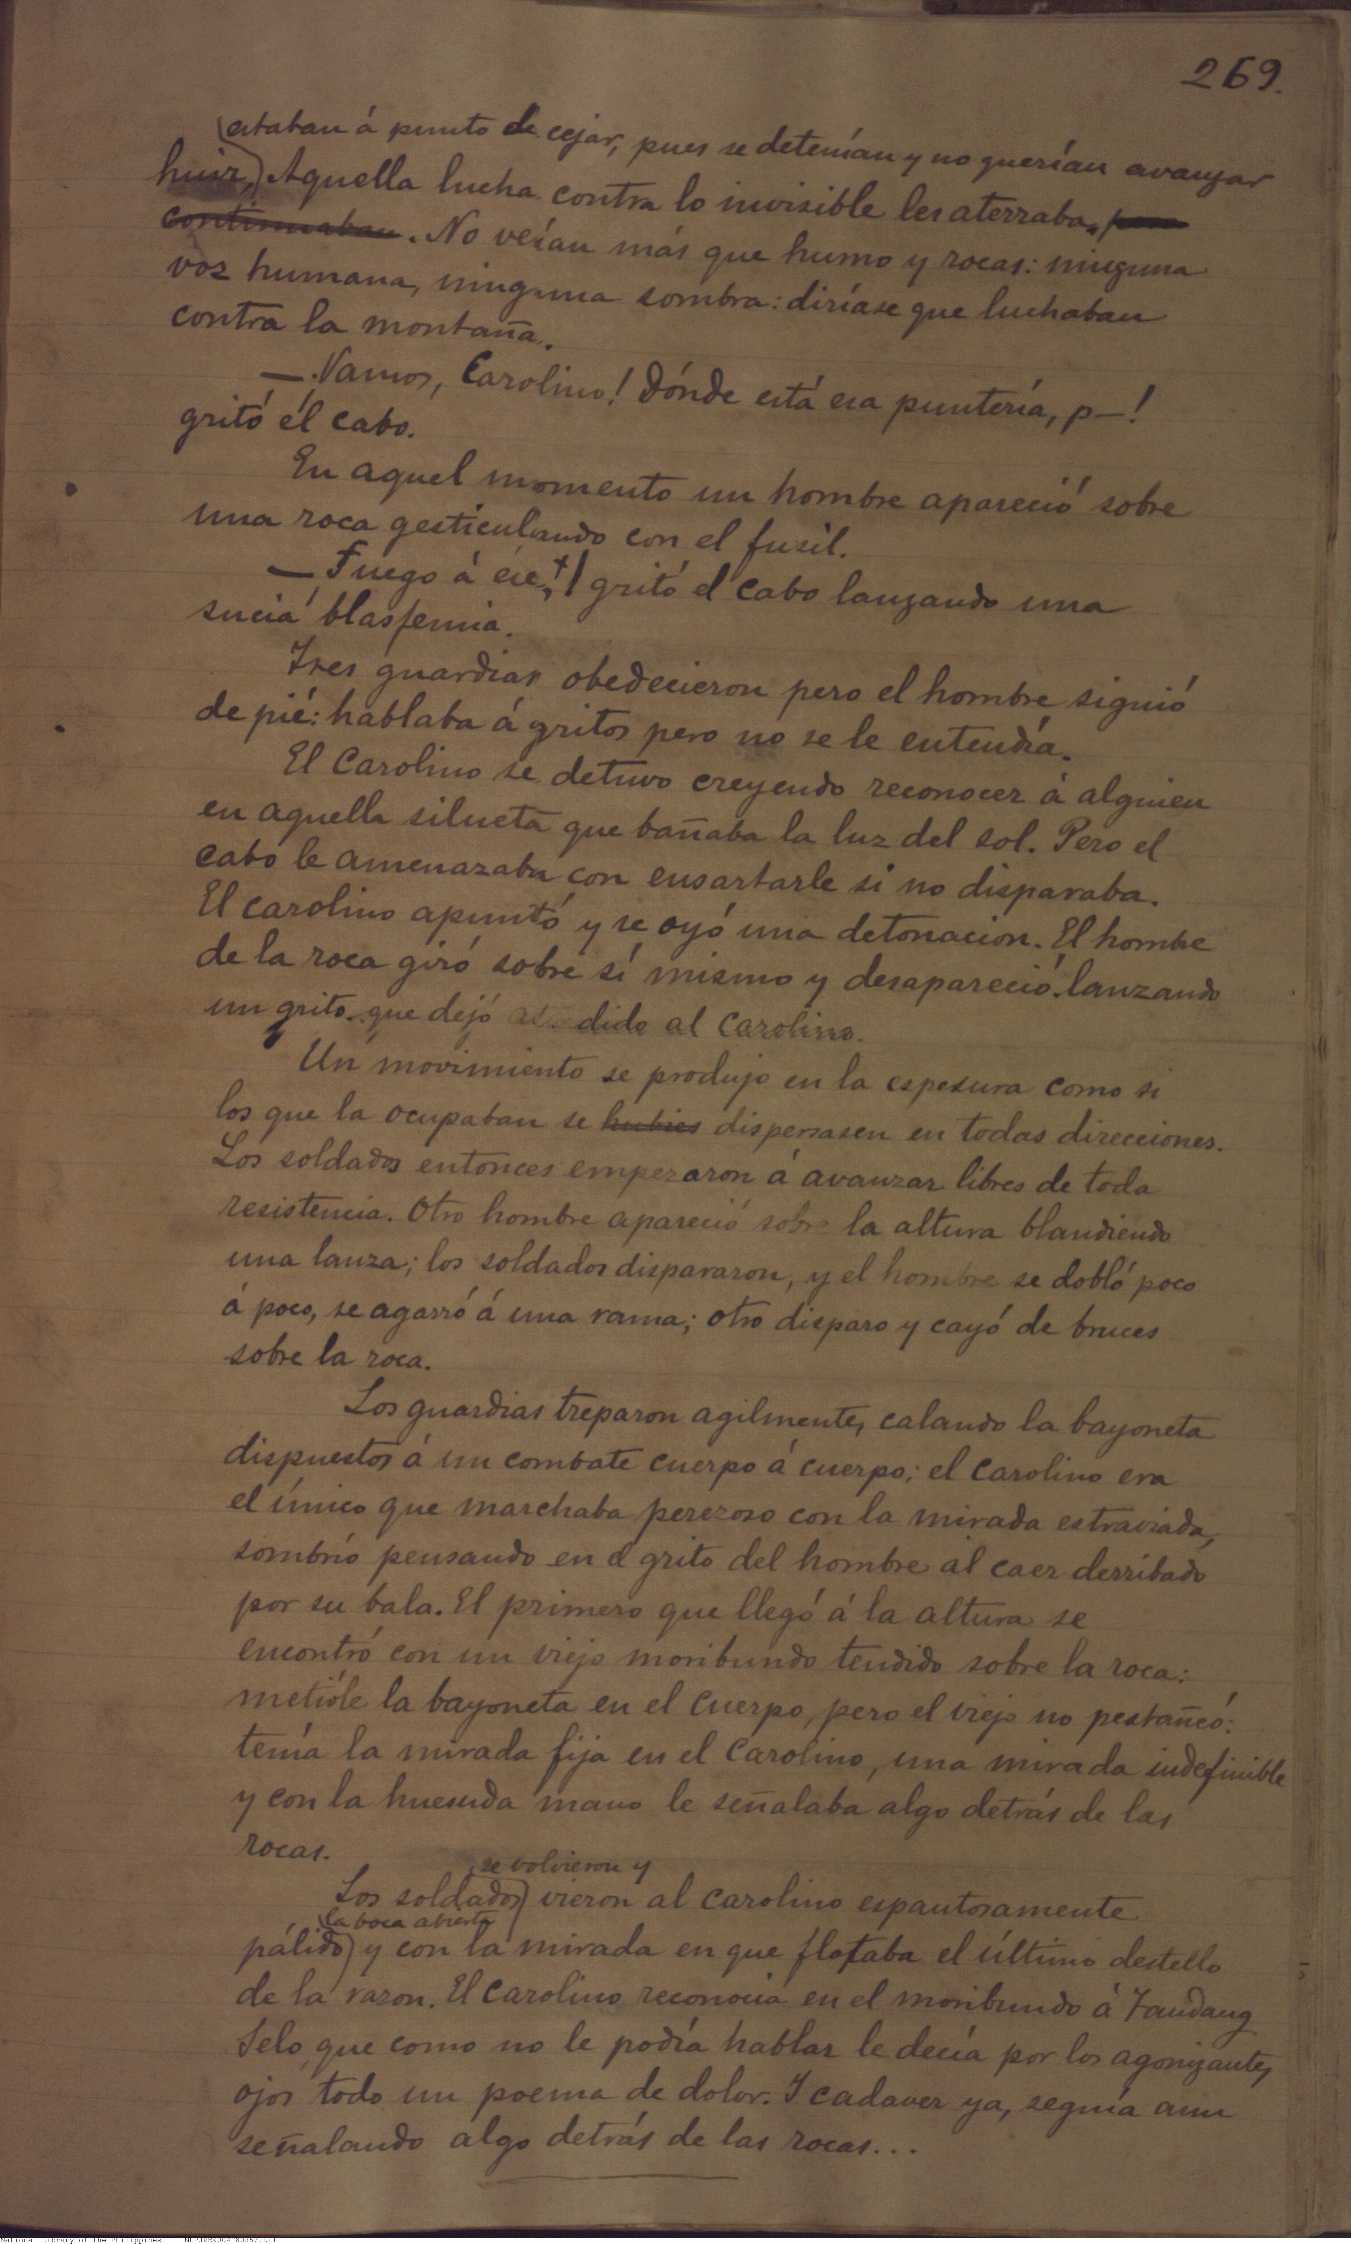 269.
estaban á punto de cejar, pues se detenían y no querían avanzar
huir, Aquella lucha contra lo invisible les aterraba,
continuaban. No veían más que humo y rocas: ninguna
voz humana, ninguna sombra: diríase que luchaban
contra la montaña.
— Vamos, Carolino! Dónde está esa puntería, p—!
gritó el cabo.
En aquel momento un hombre apareció sobre
una roca gesticulando con el fusil.
— Fuego á ése! gritó el cabo lanzando una
sucia blasfemia.
Tres guardias obedecieron pero el hombre siguió
de pié: hablaba á gritos pero no se le entendía.
El Carolino se detuvo creyendo reconocer á alguien
en aquella silueta que bañaba la luz del sol. Pero el
cabo le amenazaba con ensartarle si no disparaba.
El carolino apuntó y se oyó una detonacion. El hombre
de la roca giró sobre sí mismo y desapareció lanzando
un grito que dejó al Carolino.
Un movimiento se produjo en la espesura como si
los que la ocupaban se hubies dispersasen en todas direcciones.
Los soldados entonces empezaron á avanzar libres de toda
resistencia. Otro hombre apareció sobre la altura blandiendo
una lanza; los soldados dispararon, y el hombre se dobló poco
á poco, se agarró á una rama; otro disparo y cayó de bruces
sobre la roca.
Los guardias treparon agilmente, calando la bayoneta
dispuestos á un combate cuerpo á cuerpo; el Carolino era
el único que marchaba perezoso con la mirada estraviada,
sombrío pensando en el grito del hombre al caer derribado
por su bala. El primero que llegó á la altura se
encontró con un viejo moribundo tendido sobre la roca:
metióle la bayoneta en el cuerpo, pero el viejo no pestañeó:
tenía la mirada fija en el Carolino, una mirada indefinible
y con la huesuda mano le señalaba algo detrás de las
rocas.
se volvieron y
Los soldados vieron al Carolino espantosamente
la boca abierta
pálido y con la mirada en que flotaba el último destello
de la razon. El Carolino reconocia en el moribundo á Tandang
Selo que como no le podía hablar le decía por los agonizantes
ojos todo un poema de dolor. Y cadaver ya, seguía aun
señalando algo detrás de las rocas...
National Library of the Philippines